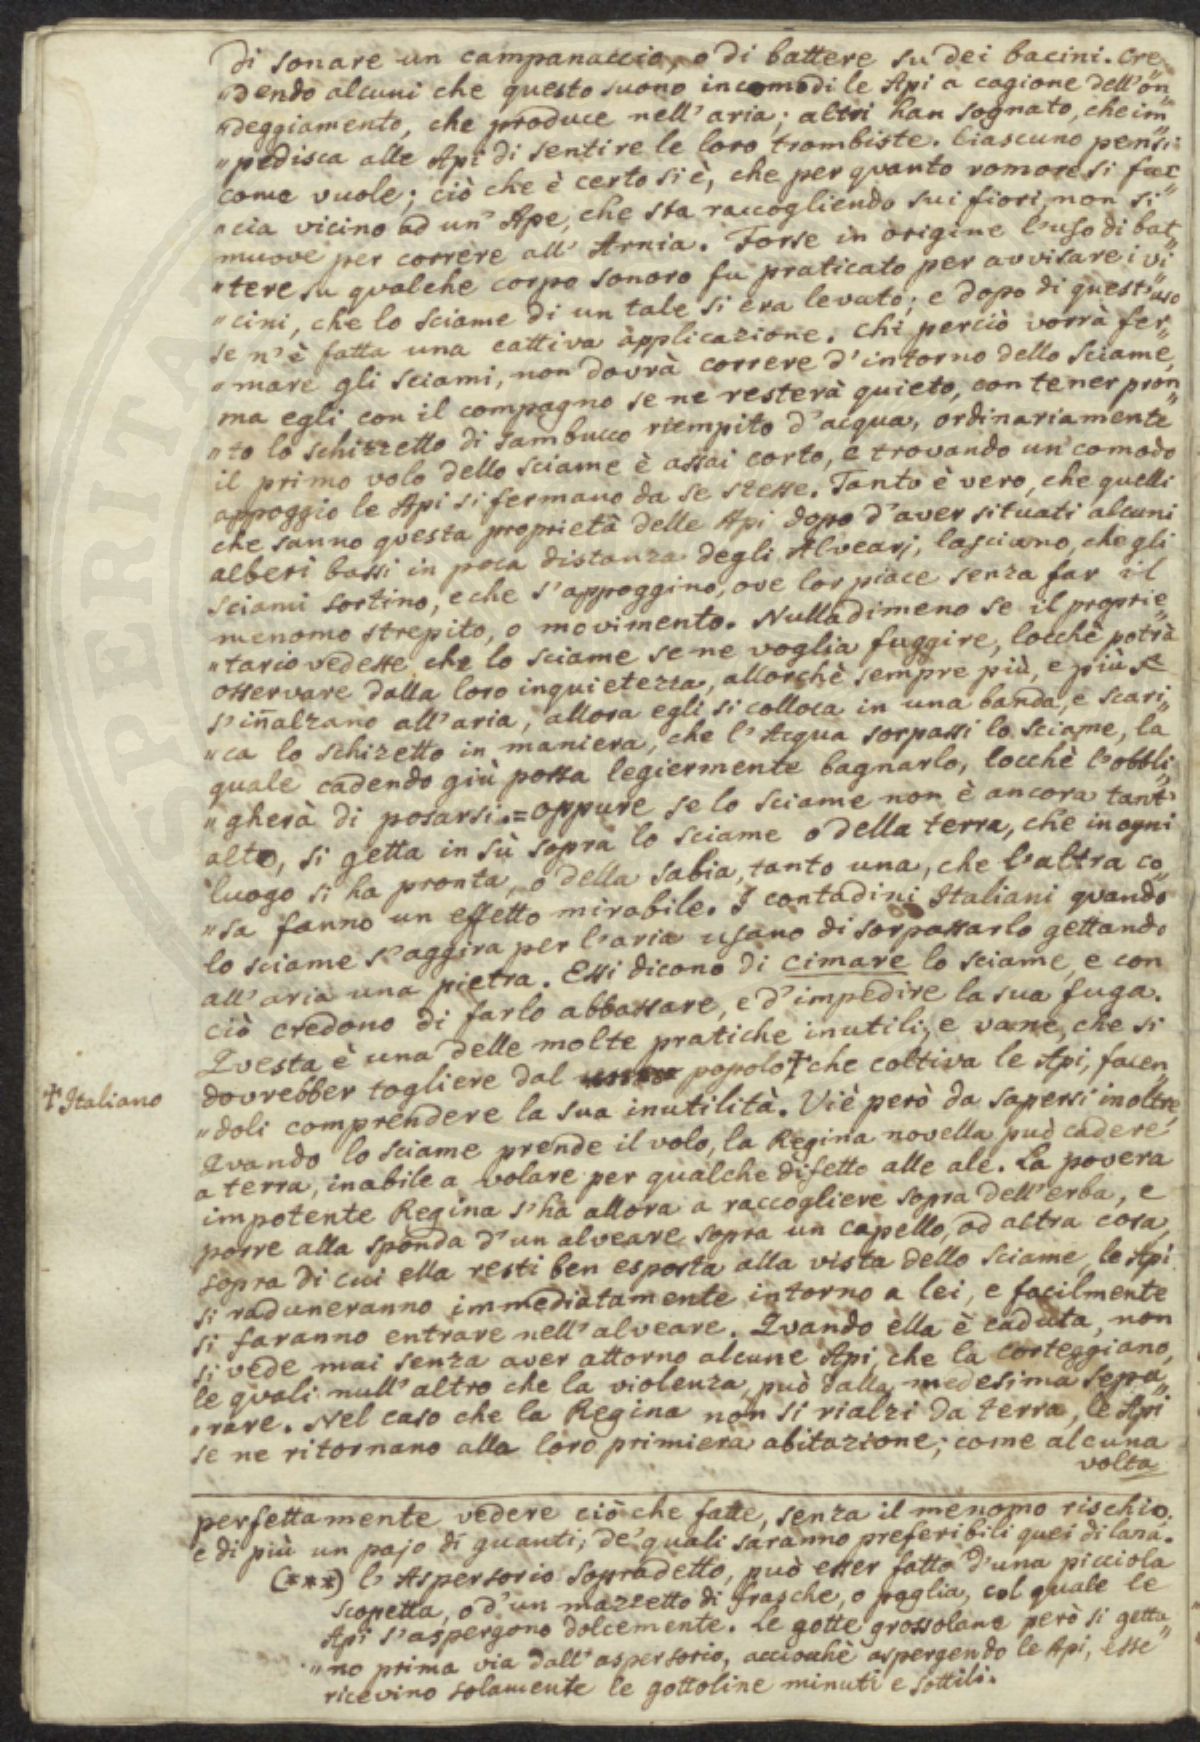 di sonare un campanaccio, o di battere su dei bacini. Cre„
„dendo alcuni che questo suono incomodi le Api a cagione dell'on„
„deggiamento, che produce nell'aria; altri han sognato, che im„
„pedisca alle Api di sentire le loro trombiste. Ciascuno pensi
come vuole; ciò che è certo si è, che per quanto romore si fac„
„cia vicino ad un' Ape, che sta raccogliendo sui fiori, non si
muove per correre all' Arnia. Forse in origine l'uso di bat„
„tere su qualche corpo sonoro fu praticato per avvisare i vi„
„cini, che lo sciame di un tale si era levato; e dopo di quest'uso
se n'è fatta una cattiva applicazione. Chi perciò vorrà fer„
„mare gli sciami, non dovrà correre d'intorno dello sciame,
ma egli con il compagno se ne resterà quieto, con tener pron„
„to lo schizzetto di sambucco riempito d'acqua, ordinariamente
il primo volo dello sciame è assai corto, e trovando un comodo
appoggio le Api si fermano da se stesse. Tanto è vero, che quelli
che sanno questa proprietà delle Api dopo d'aver situati alcuni
alberi bassi in poca distanza degli Alvearj, lasciano, che gli
sciami sortino, e che s'appoggino, ove lor piace senza far il
menomo strepito, o movimento. Nulladimeno se il proprie„
„tario vedesse che lo sciame se ne voglia fuggire, locchè potrà
osservare dalla loro inquietezza, allorchè sempre più, e più se
s'inalzano all'aria, allora egli si colloca in una banda, e scari„
„ca lo schizetto in maniera, che l'Acqua sorpassi lo sciame, la
quale cadendo giù possa legiermente bagnarlo, locchè l'obbli„
„gherà di posarsi. = oppure se lo sciame non è ancora tant'
alto, si getta in sù sopra lo sciame o della terra, che in ogni
luogo si ha pronta, o della sabia, tanto una, che l'altra co„
„sa fanno un effetto mirabile. I contadini Italiani quando
lo sciame s'aggira per l'aria usano di sorpassarlo gettando
all'aria una pietra. Essi dicono di cimare lo sciame, e con
ciò credono di farlo abbassare, e d'impedire la sua fuga.
Questa è una delle molte pratiche inutili, e vane, che si
dovrebber togliere dal popolo † che coltiva le Api, facen„
† Italiano
„doli comprendere la sua inutilità. Vi è però da sapersi inoltre,
Quando lo sciame prende il volo, la Regina novella può cadere
a terra, inabile a volare per qualche difetto alle ale. La povera
impotente Regina s'ha allora a raccogliere sopra dell'erba, e
porre alla sponda d'un alveare sopra un capello, od altra cosa,
sopra di cui ella resti ben esposta alla vista dello sciame, le Api
si raduneranno immediatamente intorno a lei, e facilmente
si faranno entrare nell'alveare. Quando ella è caduta, non
si vede mai senza aver attorno alcune Api, che la corteggiano,
le quali null'altro che la violenza, può dalla medesima sepa„
„rare. Nel caso che la Regina non si rialzi da terra, le Api
se ne ritornano alla loro primiera abitazione; come alcuna
volta
perfettamente vedere ciò che fatte, senza il menomo rischio,
e di più un pajo di guanti, de' quali saranno preferibili quei di lana.
(***) l'Aspersorio sopradetto, può esser fatto d'una picciola
scopetta, o d'un mazzetto di frasche, o paglia, col quale le
Api s'aspergono dolcemente. Le gotte grossolane però si getta„
„no prima via dall'aspersorio, acciocchè aspergendo le Api, esse
ricevino solamente le gottoline minuti e sottili.